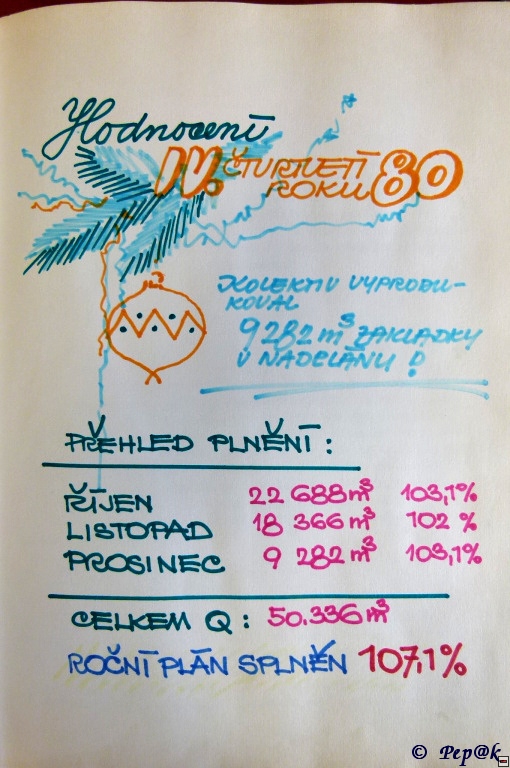 Hodnocení
IV. ČTVRTLETÍ
ROKU 80
KOLEKTIV VYPRODU-
KOVAL
9282 m³ ZAKLÁDKY
V NADĚLÁNU !
PŘEHLED PLNĚNÍ :
ŘÍJEN 22 688 m³ 103,1%
LISTOPAD 18 366 m³ 102 %
PROSINEC 9 282 m³ 103,1%
CELKEM Q : 50.336 m³
ROČNÍ PLÁN SPLNĚN 107,1%
© Pep@k